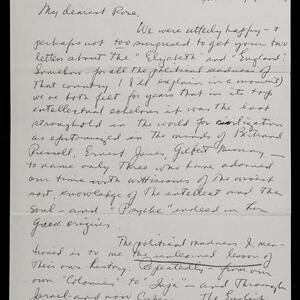 My dearest Rose,
We were utterly happy – &
perhaps not too surprised to get your two
letters about the "Elizabeth" and "England".
Somehow – for all the political madness of
that country (I'll explain in a moment)
we have both felt for years that in its top
intellectual echelons it was the last
stronghold in the world for civilization
as epitomized in the minds of Bertrand
Russell, Ernest Jones, Gilbert Murray –
to name only three who have adorned
our time with visions of the widest
sort, knowledge of the intellect and the
soul – and "Psyche" indeed in her
Greek origins ..
The political madness I men-
tioned is to me the unlearned lesson of
their own history. Repeatedly – from our
own "Colonies" to – and through
Israel and now